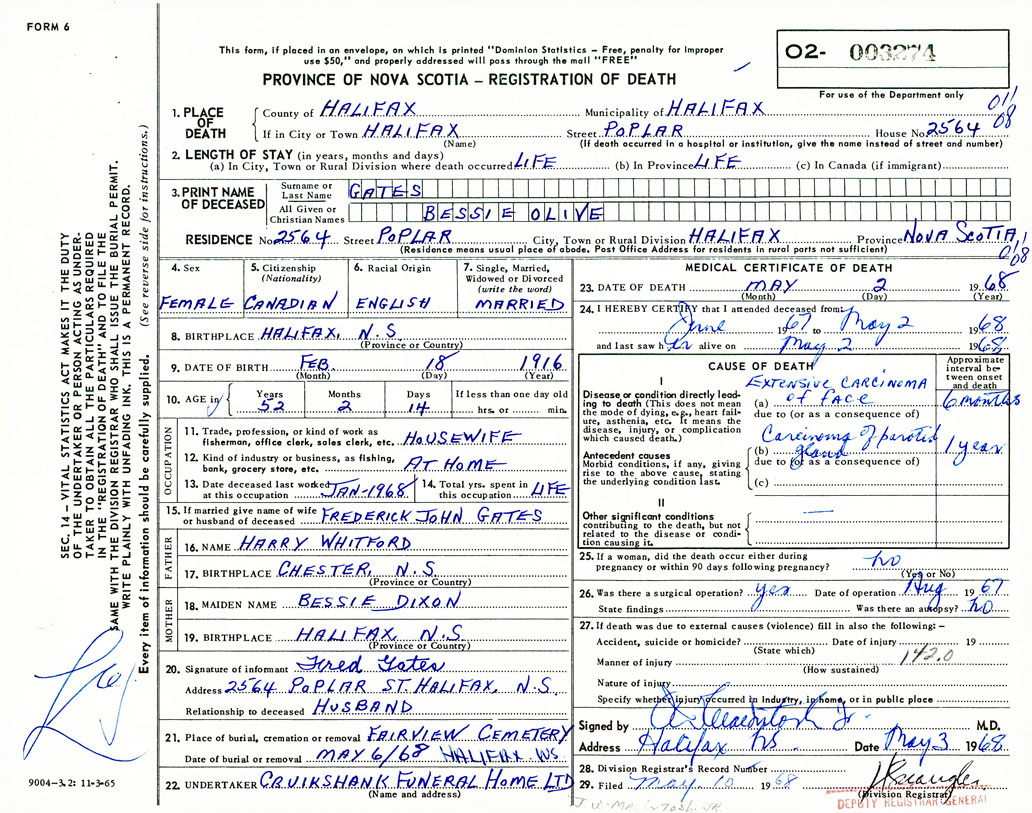 FORM 6
This form, if placed in an envelope, on which is printed "Dominion Statistics – Free, penalty for improper
use $50," and properly addressed will pass through the mail "FREE"
PROVINCE OF NOVA SCOTIA – REGISTRATION OF DEATH
O2- 003274
For use of the Department only
011
08
1. PLACE OF DEATH
County of HALIFAX Municipality of HALIFAX
If in City or Town HALIFAX Street POPLAR House No. 2564
(Name) (If death occurred in a hospital or institution, give the name instead of street and number)
2. LENGTH OF STAY (in years, months and days)
(a) In City, Town or Rural Division where death occurred LIFE (b) In Province LIFE (c) In Canada (if immigrant)
3. PRINT NAME OF DECEASED
Surname or Last Name GATES
All Given or Christian Names BESSIE OLIVE
RESIDENCE No. 2564 Street POPLAR City, Town or Rural Division HALIFAX Province NOVA SCOTIA
(Residence means usual place of abode. Post Office Address for residents in rural parts not sufficient)
011
08
4. Sex
FEMALE
5. Citizenship
(Nationality)
CANADIAN
6. Racial Origin
ENGLISH
7. Single, Married,
Widowed or Divorced
(write the word)
MARRIED
8. BIRTHPLACE HALIFAX, N.S.
(Province or Country)
9. DATE OF BIRTH FEB. 18 1916
(Month) (Day) (Year)
10. AGE in
Years Months Days If less than one day old
52 2 14 hrs. or min.
OCCUPATION
11. Trade, profession, or kind of work as
fisherman, office clerk, sales clerk, etc. HOUSEWIFE
12. Kind of industry or business, as fishing,
bank, grocery store, etc. AT HOME
13. Date deceased last worked
at this occupation JAN-1968
14. Total yrs. spent
in this occupation LIFE
15. If married give name of wife
or husband of deceased FREDERICK JOHN GATES
FATHER
16. NAME HARRY WHITFORD
17. BIRTHPLACE CHESTER, N.S.
(Province or Country)
MOTHER
18. MAIDEN NAME BESSIE DIXON
19. BIRTHPLACE HALIFAX, N.S.
(Province or Country)
20. Signature of informant Fred Gates
Address 2564 POPLAR ST. HALIFAX, N.S.
Relationship to deceased HUSBAND
21. Place of burial, cremation or removal FAIRVIEW CEMETERY
Date of burial or removal MAY 6/68 HALIFAX NS
22. UNDERTAKER CRUIKSHANK FUNERAL HOME LTD
(Name and address)
MEDICAL CERTIFICATE OF DEATH
23. DATE OF DEATH MAY 2 1968
(Month) (Day) (Year)
24. I HEREBY CERTIFY that I attended deceased from:
June 1967 to May 2 1968
and last saw her alive on May 2 1968
CAUSE OF DEATH
Approximate
interval be-
tween onset
and death
I
Disease or condition directly lead-
ing to death (This does not mean
the mode of dying, e.g., heart fail-
ure, asthenia, etc. It means the
disease, injury, or complication
which caused death.)
EXTENSIVE CARCINOMA
(a) of FACE 6 months
due to (or as a consequence of)
Antecedent causes
Morbid conditions, if any, giving
rise to the above cause, stating
the underlying condition last.
Carcinoma of parotid
(b) gland 1 year
due to (or as a consequence of)
(c)
II
Other significant conditions
contributing to the death, but not
related to the disease or condi-
tion causing it.
25. If a woman, did the death occur either during
pregnancy or within 90 days following pregnancy? no
(Yes or No)
26. Was there a surgical operation? yes Date of operation Aug 1967
State findings Was there an autopsy? no
27. If death was due to external causes (violence) fill in also the following:–
Accident, suicide or homicide? Date of injury 19
(State which)
142.0
Manner of injury
(How sustained)
Nature of injury
Specify whether injury occurred in Industry, in home, or in public place
Signed by Macintosh Jr. M.D.
Address Halifax NS. Date May 3 1968
28. Division Registrar's Record Number
29. Filed May 10 1968
(Division Registrar)
DEPUTY REGISTRAR GENERAL
J.W. MACINTOSH JR.
SEC. 14 – VITAL STATISTICS ACT MAKES IT THE DUTY
OF THE UNDERTAKER OR PERSON ACTING AS UNDER-
TAKER TO OBTAIN ALL THE PARTICULARS REQUIRED
IN THE "REGISTRATION OF DEATH" AND TO FILE THE
SAME WITH THE DIVISION REGISTRAR WHO SHALL ISSUE THE BURIAL PERMIT.
WRITE PLAINLY WITH UNFADING INK. THIS IS A PERMANENT RECORD.
Every item of information should be carefully supplied. (See reverse side for instructions.)
9004-3.2: 11-3-65